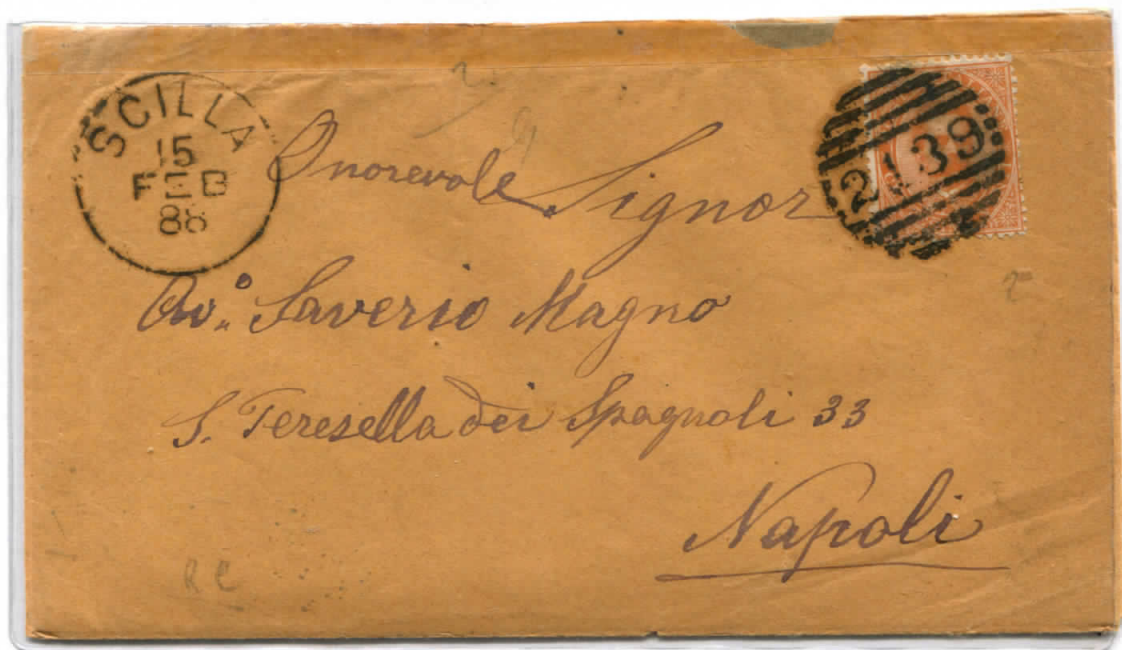 SCILLA
15
FEB
88
2139
Onorevole Signor
Av.º Saverio Magno
S. Teresella dei Spagnoli 33
Napoli